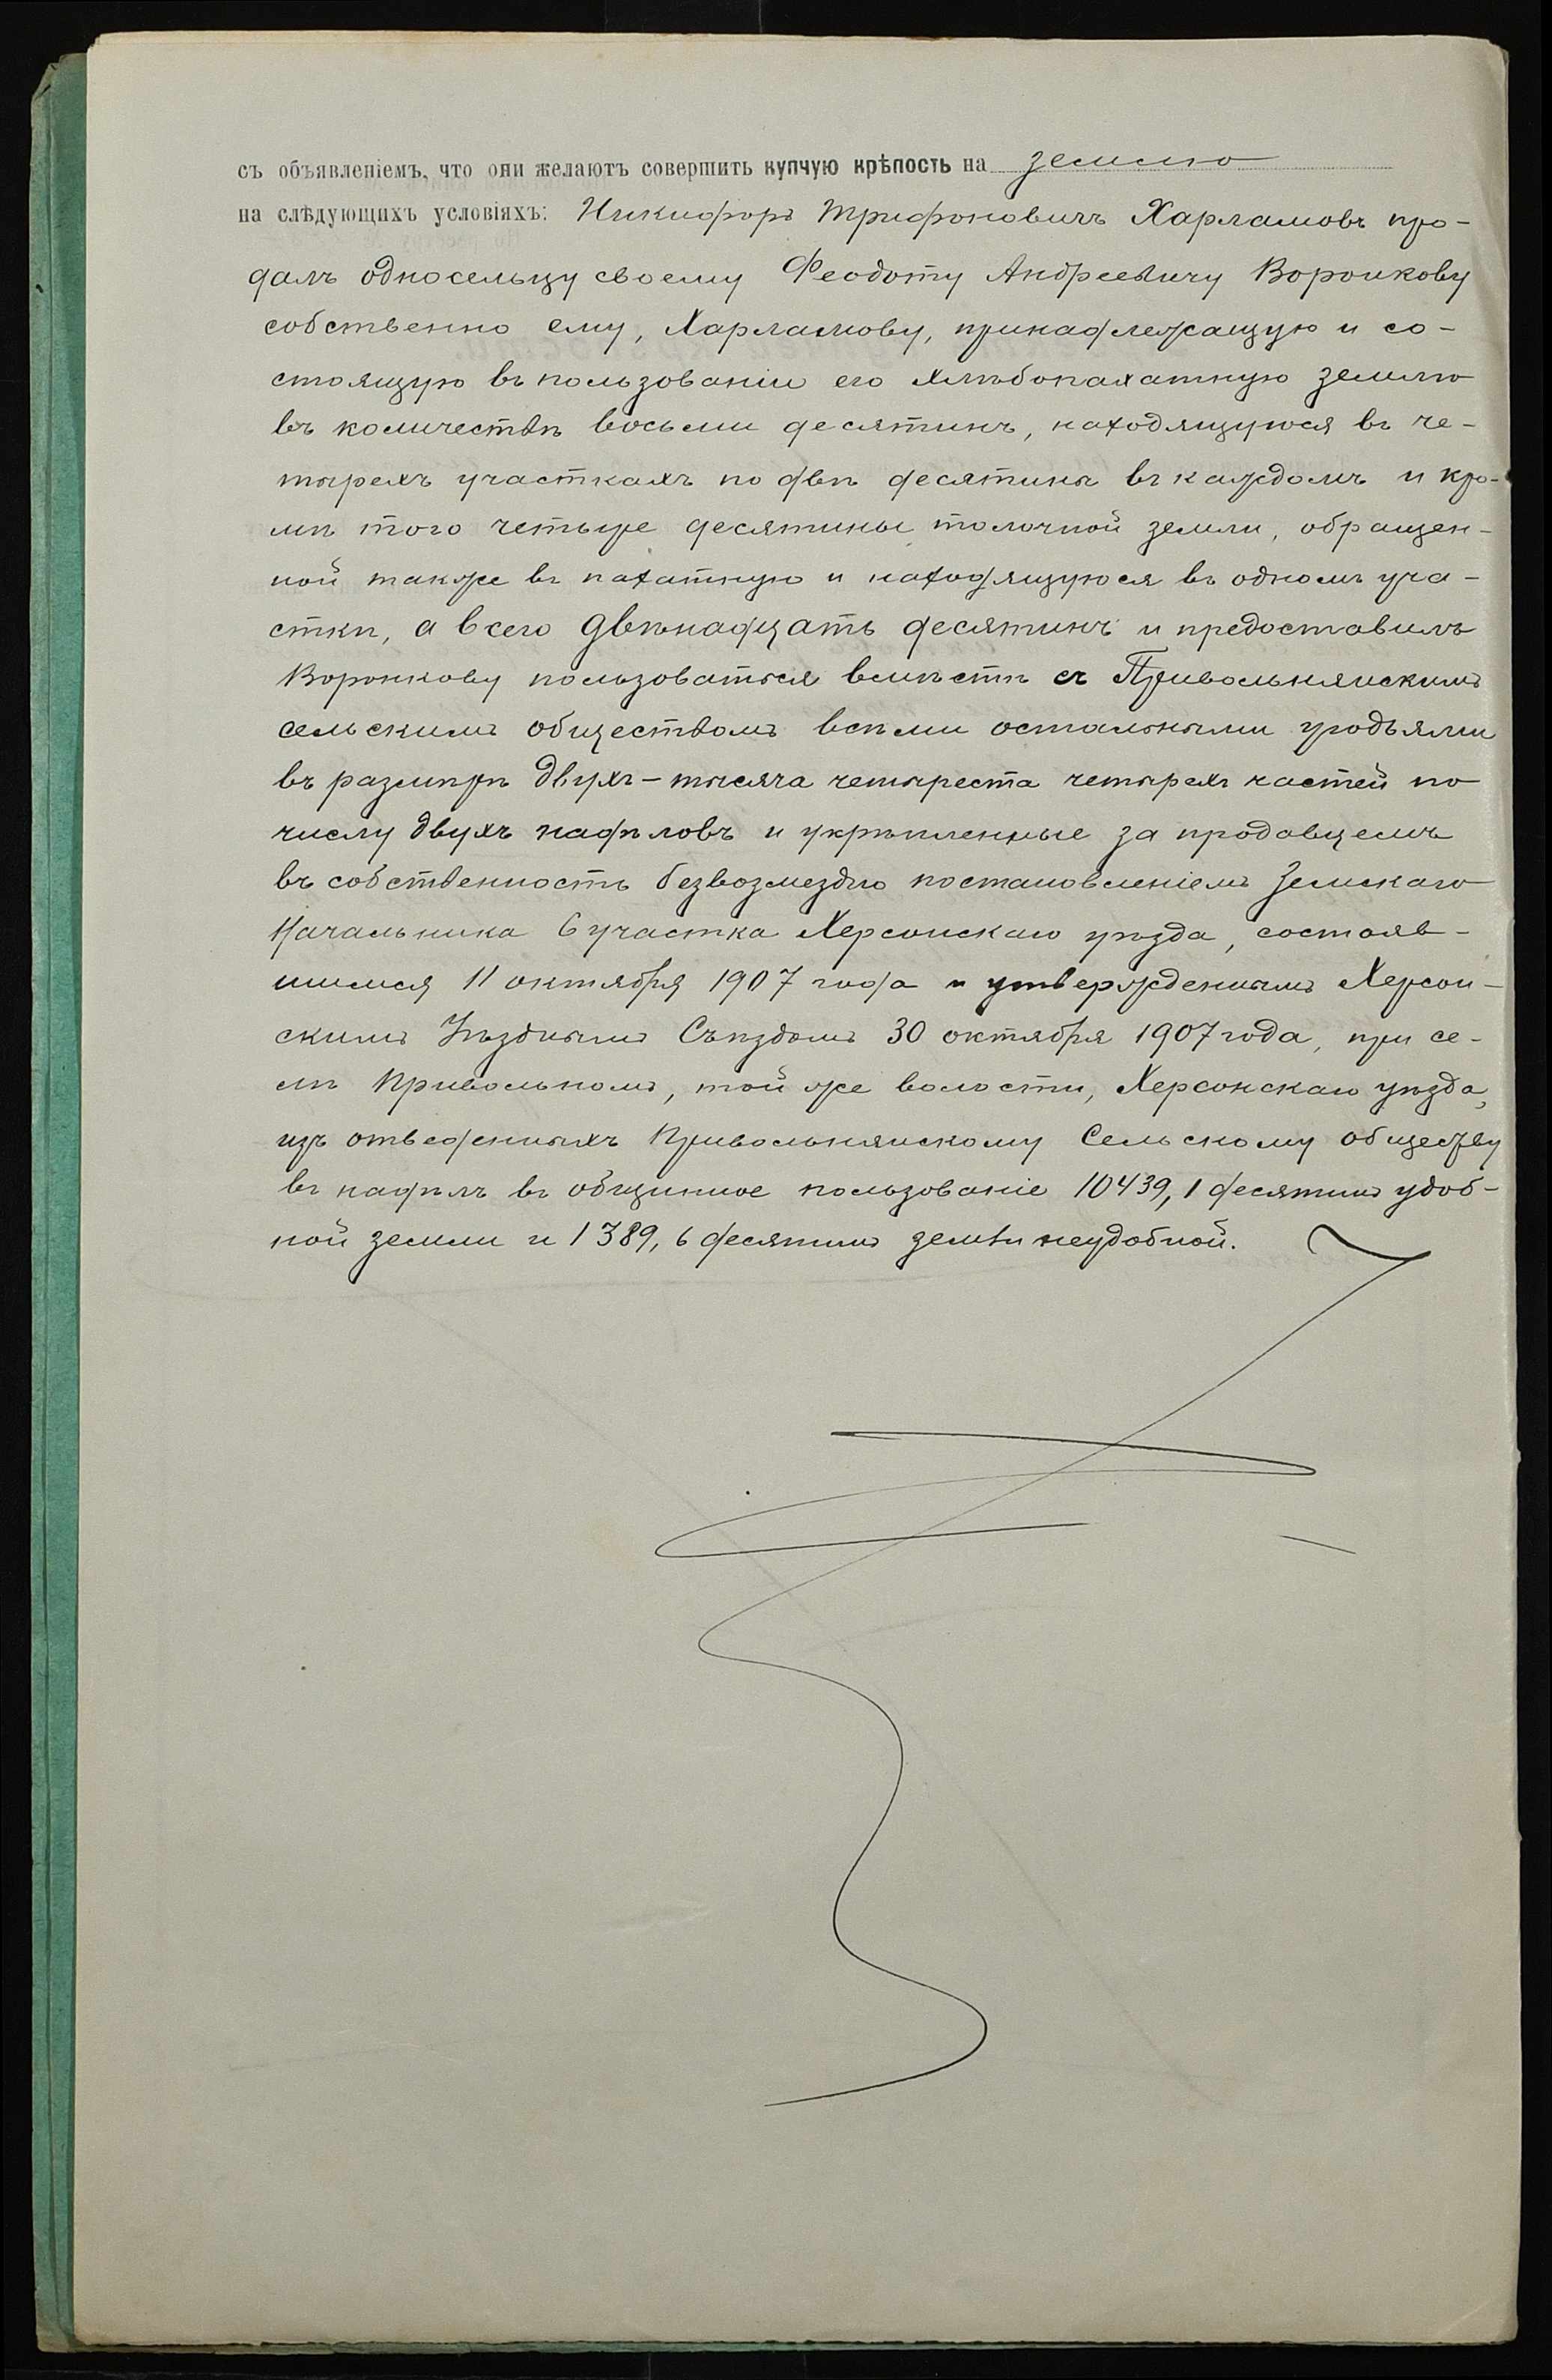 съ объявленіемъ, что они желаютъ совершить купчую крѣпость на землю
на слѣдующихъ условіяхъ: Никифоръ Трифоновичъ Харламовъ про-
далъ односельцу своему Феодоту Андреевичу Воронкову
собственно ему, Харламову, принадлежащую и со-
стоящую въ пользованіи его хлѣбопахатную землю
въ количествѣ восьми десятинъ, находящуюся въ че-
тырехъ участкахъ по двѣ десятины въ каждомъ и кро-
мѣ того четыре десятины толочной земли, обращен-
ной также въ пахатную и находящуюся въ одномъ уча-
сткѣ, а всего двѣнадцать десятинъ и предоставилъ
Воронкову пользоваться вмѣстѣ съ Привольнянскимъ
сельскимъ обществомъ всѣми остальными угодьями
въ размѣрѣ двухъ-тысяча четыреста четырехъ частей по
числу двухъ надѣловъ и укрѣпленные за продавцемъ
въ собственность безвозмездно постановленіемъ Земскаго
Начальника 6 участка Херсонскаго уѣзда, состояв-
шимся 11 октября 1907 года и утвержденнымъ Херсон-
скимъ Уѣзднымъ Съѣздомъ 30 октября 1907 года, при се-
лѣ Привольномъ, той же волости, Херсонскаго уѣзда,
изъ отведенныхъ Привольнянскому Сельскому обществу
въ надѣлъ въ общинное пользованіе 10439,1 десятинъ удоб-
ной земли и 1389,6 десятинъ земли неудобной.